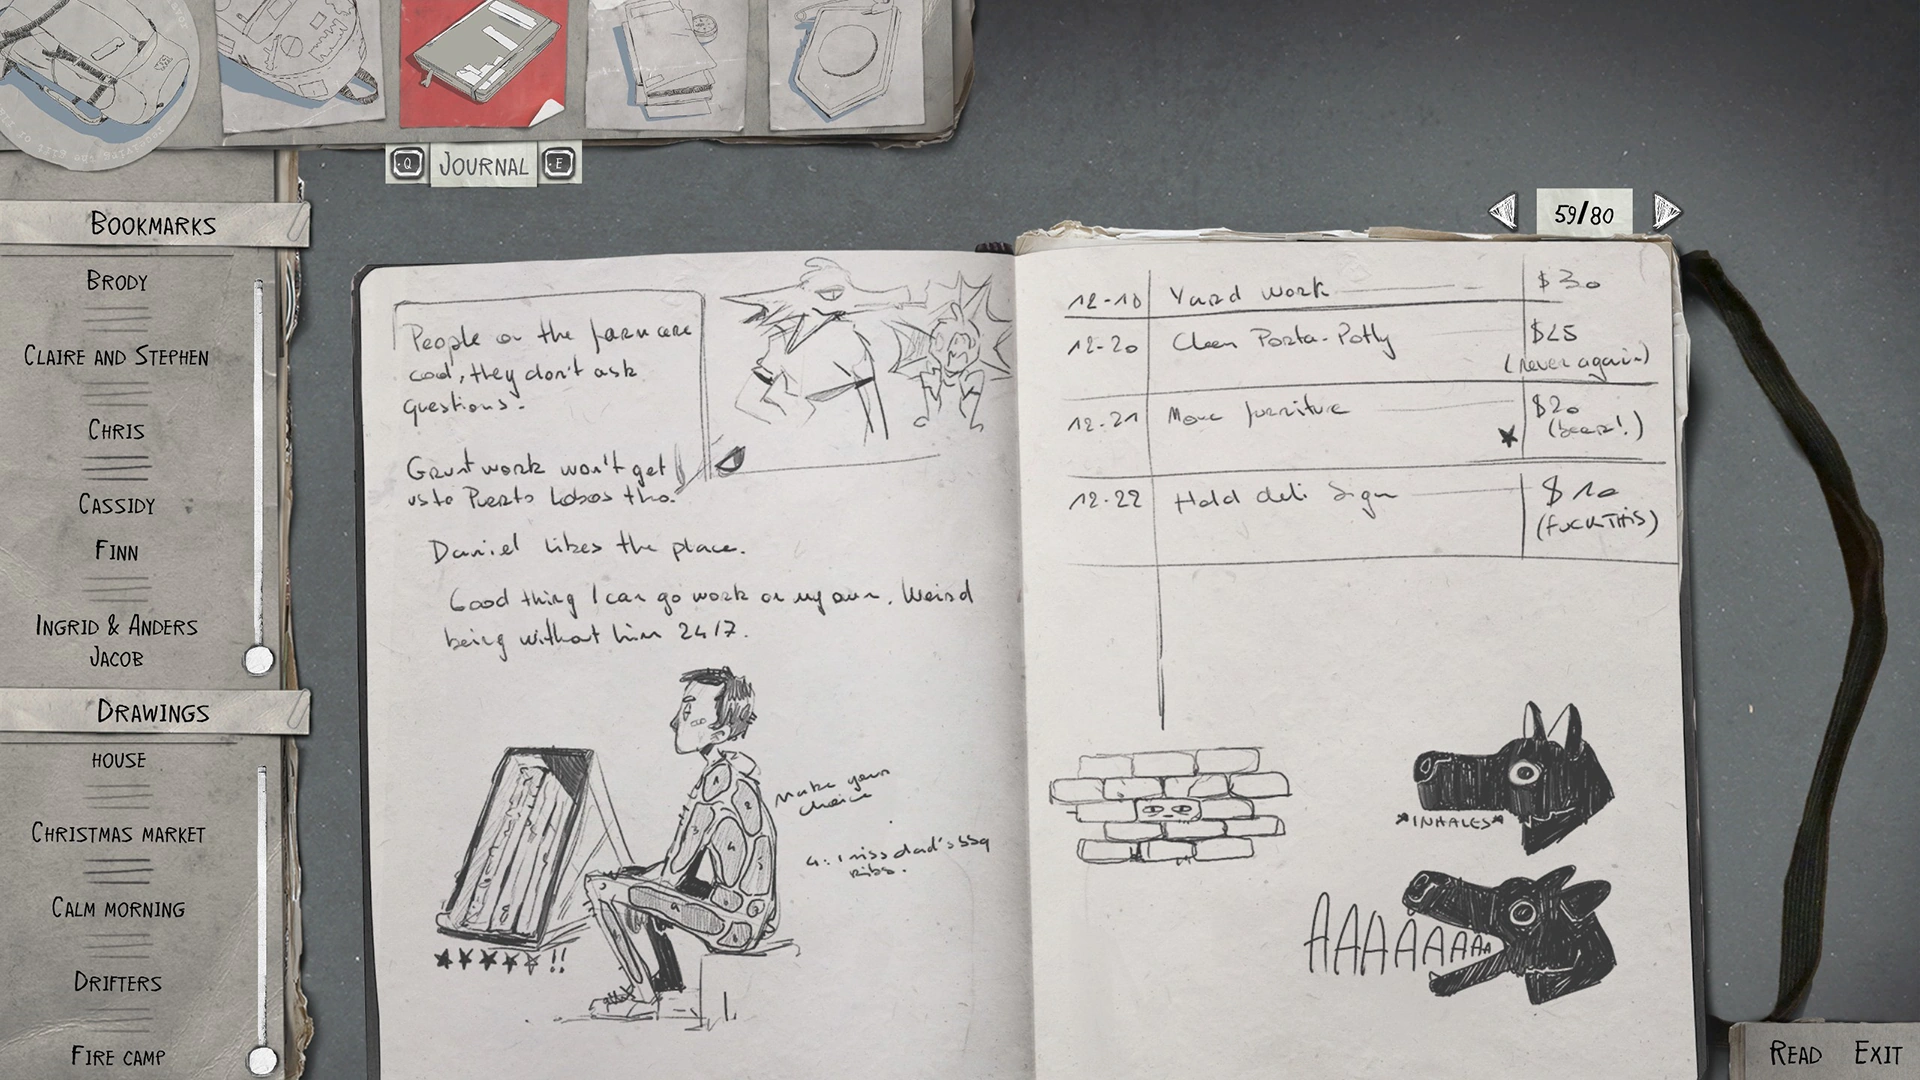 Q JOURNAL E
BOOKMARKS
BRODY
CLAIRE AND STEPHEN
CHRIS
CASSIDY
FINN
INGRID & ANDERS
JACOB
DRAWINGS
HOUSE
CHRISTMAS MARKET
CALM MORNING
DRIFTERS
FIRE CAMP
59/80
People on the farm are
cool, they don't ask
questions.
Grunt work won't get
us to Puerto Lobos tho.
Daniel likes the place.
Good thing I can go work on my own. Weird
being without him 24/7.
Make your
choice
4: I miss dad's BBQ
Ribs.
12-18 Yard work $30
12-20 Clean Porta-Potty $25
(never again)
12-21 Move furniture $20
(beer!)
12-22 Hold deli sign $10
(FUCK THIS)
*INHALES*
AAAAAAAA
READ EXIT